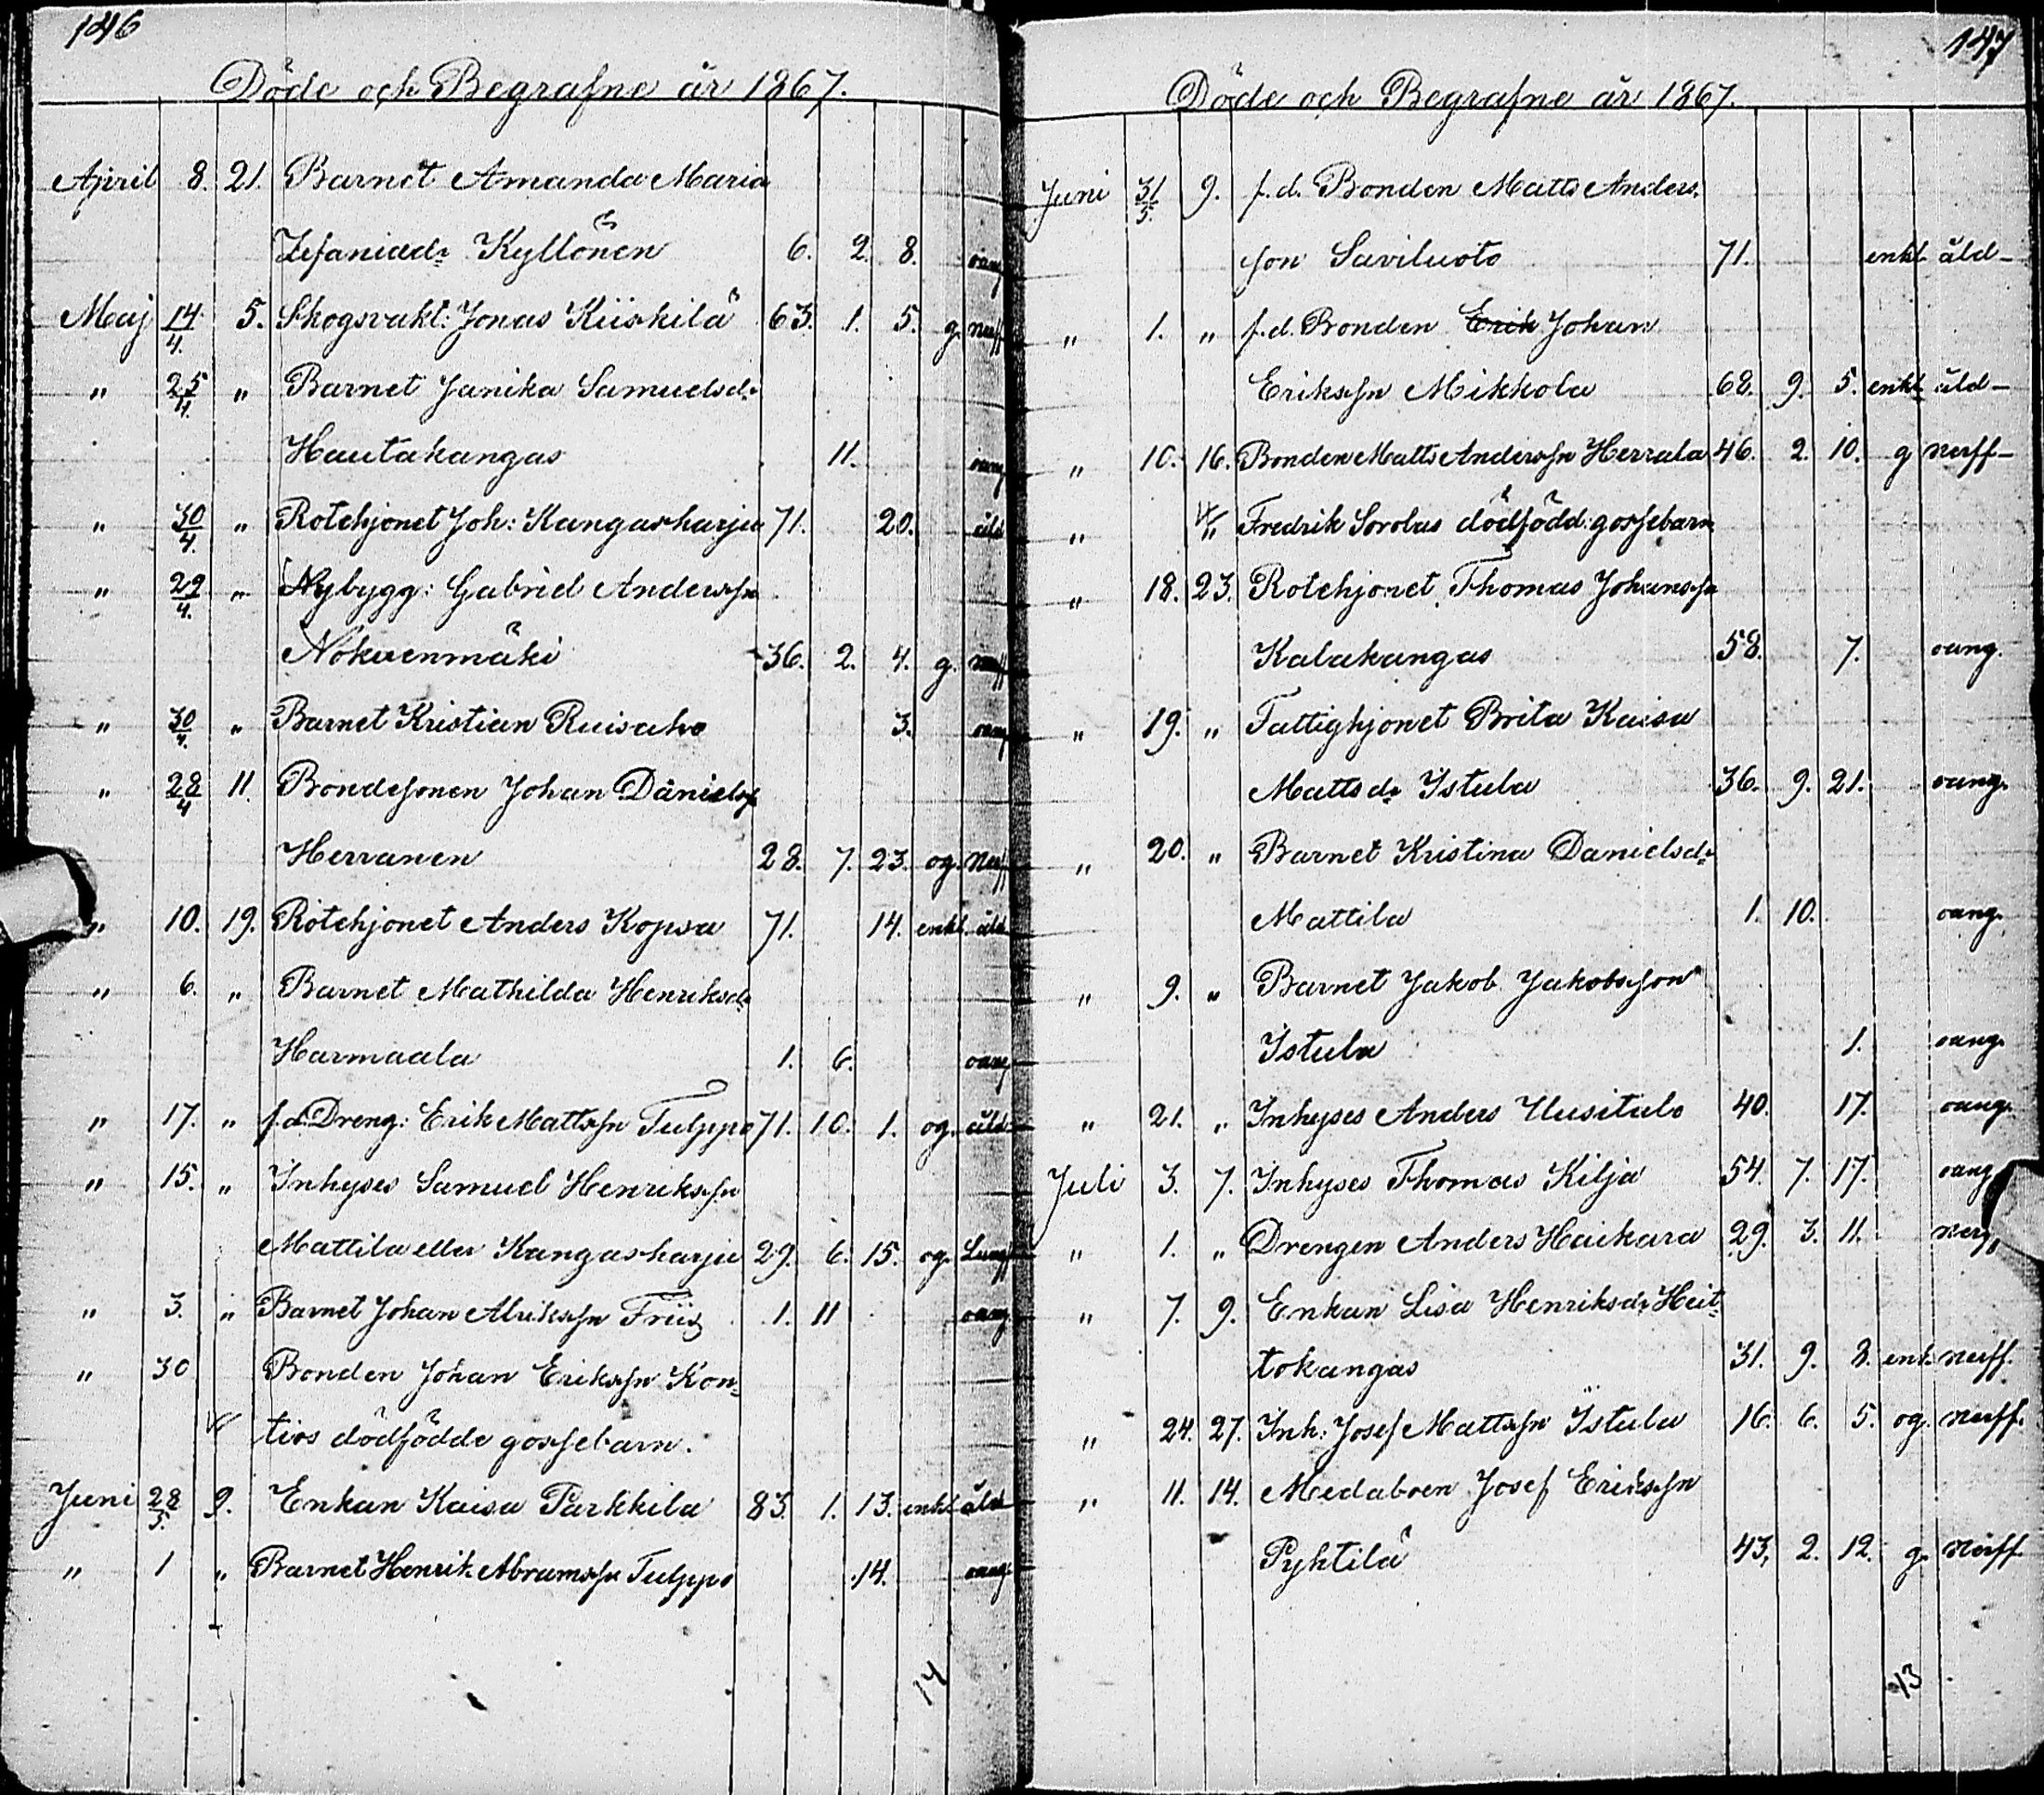 146
Döde och Begrafne år 1867.
April 8. 21. Barnet Amanda Maria
Zefaniadr Kyllönen 6. 2. 8. oang
Maj 14/4. 5. Skogsvakt: Jonas Kiiskilä 63. 1. 5. g. nerff
" 25/4. " Barnet Janika Samuelsdr
Hautakangas 11. oang
" 30/4. " Rotehjonet Joh: Kangasharju 71. 20. åld
" 29/4. " Nybygg: Gabriel Anderssn
Nokuenmäki 36. 2. 4. g. nerff
" 30/4. " Barnet Kristian Ruisaho 3. oang
" 28/4 11. Bondesonen Johan Danielss
Herranen 28. 7. 23. og. Nerff
" 10. 19. Rotehjonet Anders Kopsa 71. 14. enkl. åld
" 6. " Barnet Mathilda Henriksdr
Harmaala 1. 6. oang
" 17. " f.d. Dreng: Erik Mattssn Tulppo 71. 10. 1. og. åld
" 15. " Inhyses Samuel Henrikssn
Mattila eller Kangasharju 29. 6. 15. og. Lungf
" 3. " Barnet Johan Alrikssn Friis 1. 11 oang
" 30 Bonden Johan Erikssn Kon-
tios dödfödde gossebarn.
Juni 28/5. 9. Enkan Kaisa Parkkila 83. 1. 13. enkl åld
" 1 " Barnet Henrik Abramssn Tulppo 14. oang.
14
147
Döde och Begrafne år 1867.
Juni 31/5. 9. f.d. Bonden Matts Anders-
son Saviluoto 71. enkl. åld-
" 1. " f.d. Bonden Erik Johan
Erikssn Mikkola 68. 9. 5. enkl åld-
" 10. 16. Bonden Matts Anderssn Herrala 46. 2. 10. g nerff-
" Fredrik Sorolas dödfödd: gossebarn
" 18. 23. Rotehjonet Thomas Johanssn
Kalakangas 58. 7. oang.
" 19. " Fattighjonet Brita Kaisa
Mattsdr Istula 36. 9. 21. oang.
" 20. " Barnet Kristina Danielsdr
Mattila 1. 10. oang.
" 9. " Barnet Jakob Jakobsson
Istula 1. oang.
" 21. " Inhyses Anders Uusitalo 40. 17. oang.
Juli 3. 7. Inhyses Thomas Kilja 54. 7. 17. oang
" 1. " Drengen Anders Haikara 29. 3. 11. nerf
" 7. 9. Enkan Lisa Henriksdr Heit-
tokangas 31. 9. 8. enk. nerff.
" 24. 27. Inh: Josef Mattssn Istula 16. 6. 5. og. nerff.
" 11. 14. Medaboen Josef Erikssn
Pyhtilä 43, 2. 12. g. nerff
13